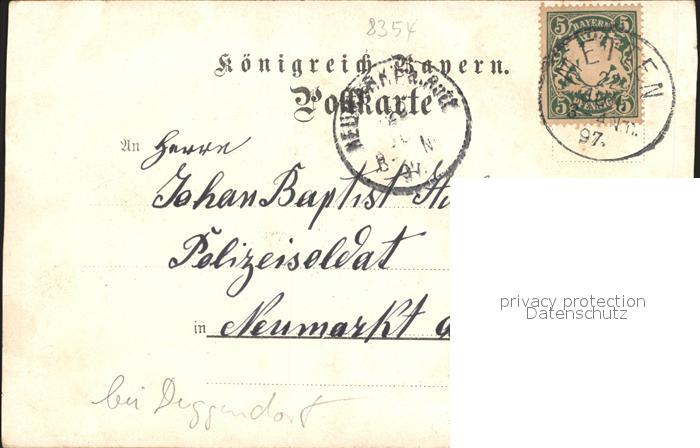 8354
Königreich Bayern.
Postkarte
5 BAYERN 5
5 PFENNIG 5
97.
NEUMARKT A. Rott
An Herrn
Johan Baptist
Polizeisoldat
in Neumarkt a
bei Deggendorf
privacy protection
Datenschutz